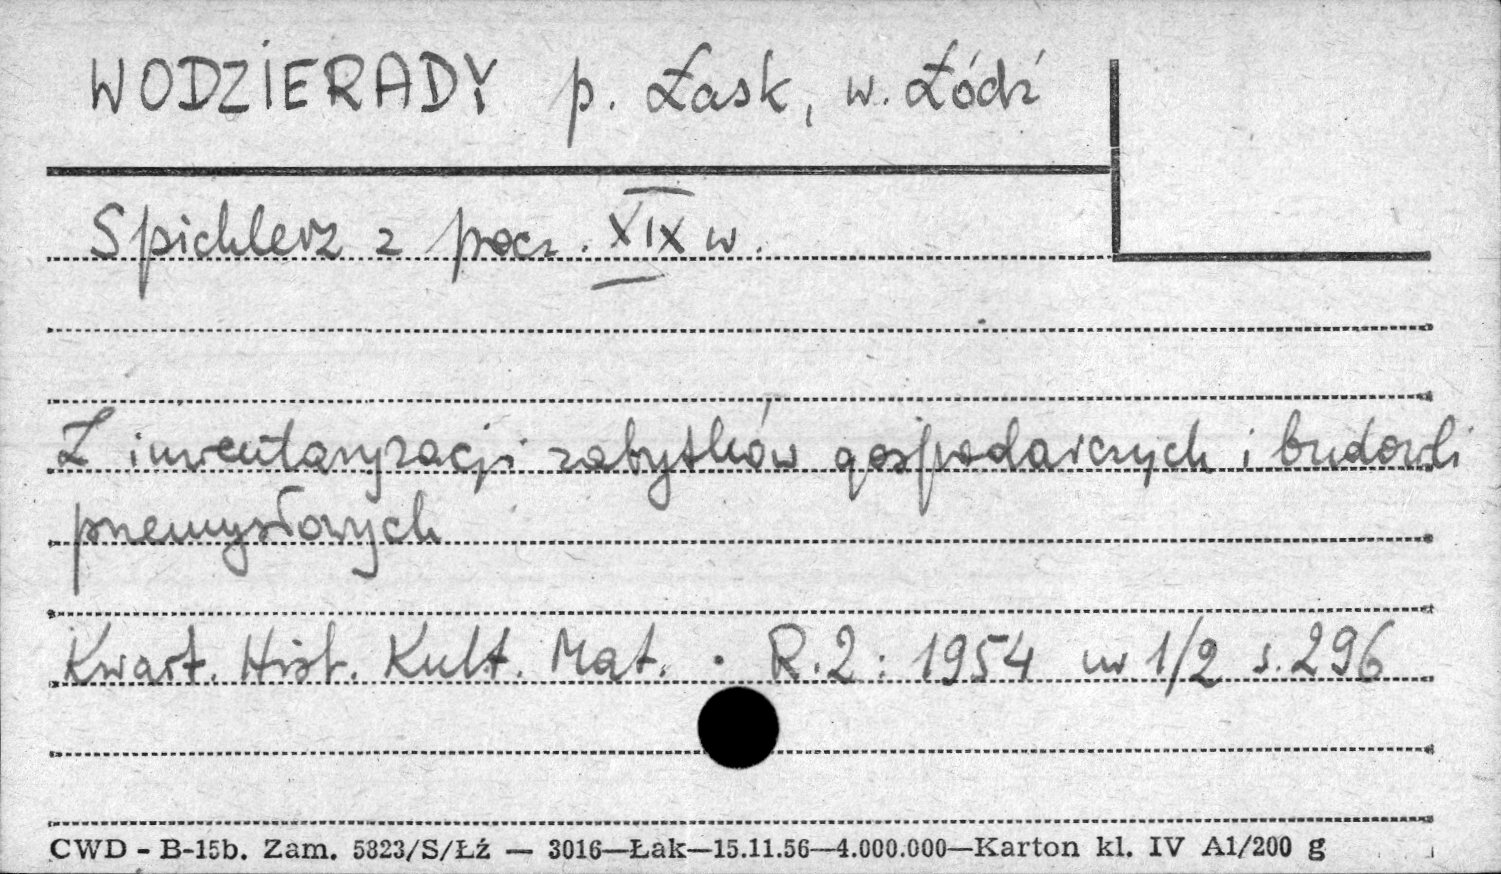 WODZIERADY p. Łask, w. Łódź
Spichlerz z pocz. XIX w.
Z inwentaryzacji zabytków gospodarczych i budowli
przemysłowych
Kwart. Hist. Kult. Mat. . R.2: 1954 nr 1/2 s. 296
CWD - B-15b. Zam. 5823/S/Łź — 3016—Łak—15.11.56—4.000.000—Karton kl. IV A1/200 g